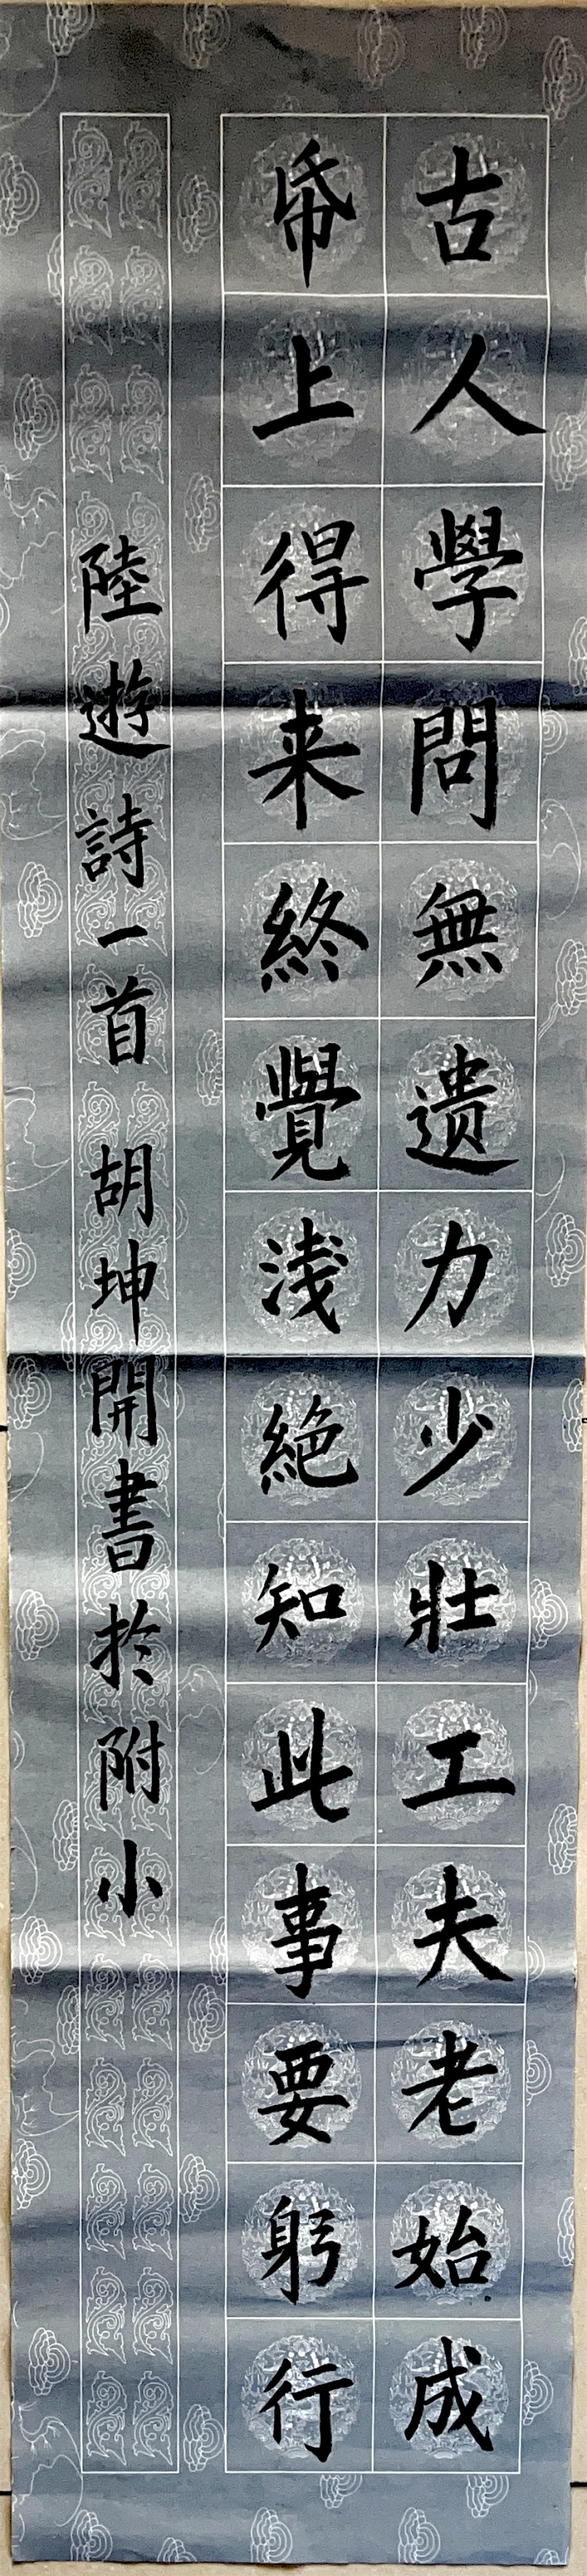 古人學問無遗力少壯工夫老始成
帋上得来終覺淺絶知此事要躬行
陸遊詩一首 胡坤開書扵附小